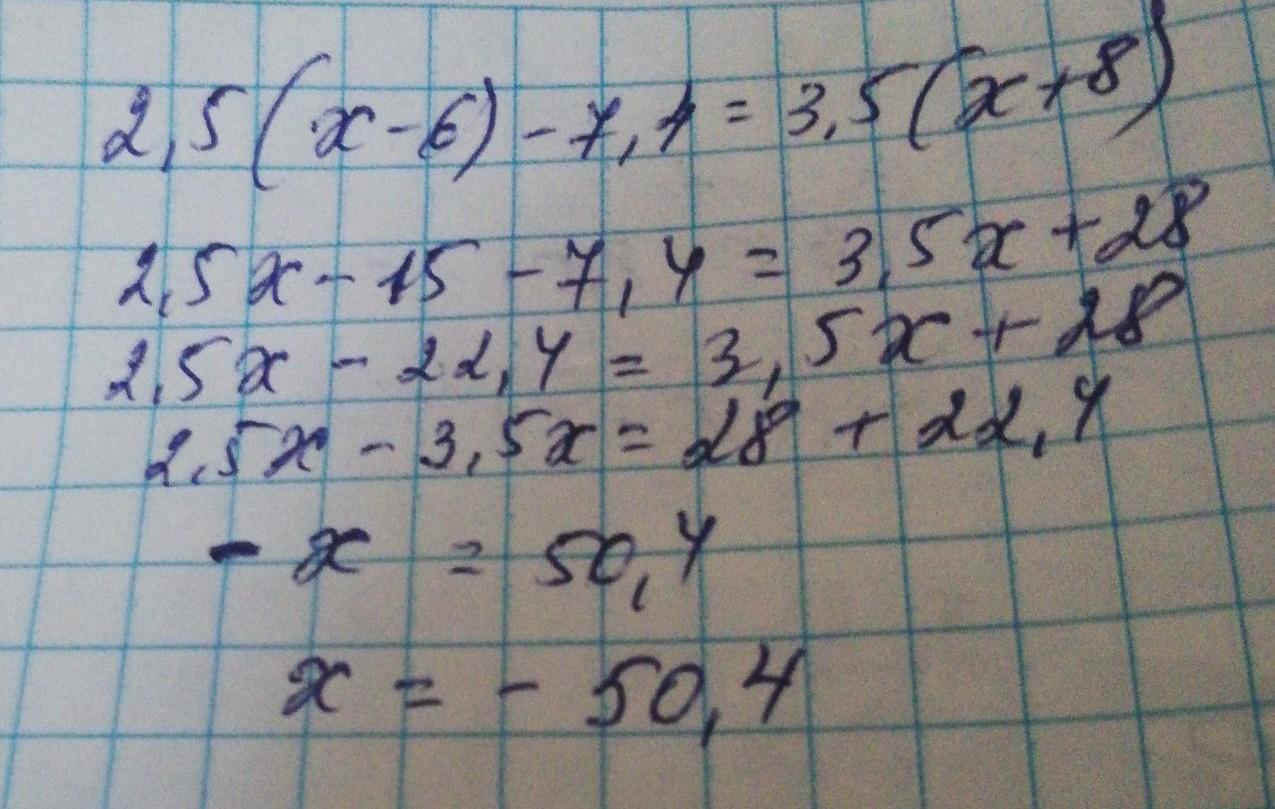 2,5(x-6)-7,4=3,5(x+8)
2,5x-15-7,4=3,5x+28
2,5x-22,4=3,5x+28
2,5x-3,5x=28+22,4
-x=50,4
x=-50,4